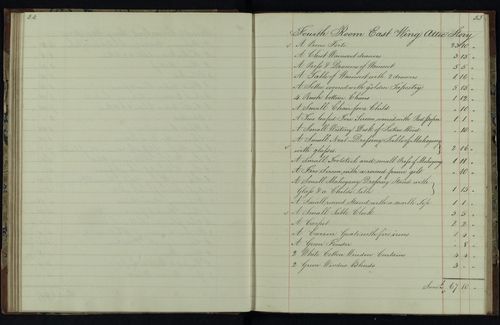 52
53
Fourth Room East Wing Attic Story
A Piano Forte 25 10 -
A Chest Wainscot drawers 3 15 -
A Press & Drawers of Wainscot 5 5 -
A Table of Wainscot with 2 drawers 1 10 -
A Settee covered with golden Tapestry 5 15 -
4 Rush bottom Chairs 1 12 -
A Small Chair for a Child - 10 -
A Fire Screen covered with Paper 1 1 -
A Small Writing Desk of Wood - 10 -
A Small Neat Dressing Table of Mahogany
with glasses 2 16 -
A Small Footstool and small Press of Mahogany 1 11 -
A Fire Screen with a round frame gilt - 10 -
A Small Mahogany Dressing Stand with
Glass & a Childs Table 1 15 -
A Small round Stand with a marble Top 1 1 -
A Small Table Clock 5 5 -
A Carpet 2 2 -
A Carron Grate with fire irons 1 -
A Green Fender - 8 -
2 White Cotton Window Curtains 4 4 -
2 Green Window Blinds 3 - -
Sum £ 67 10 -